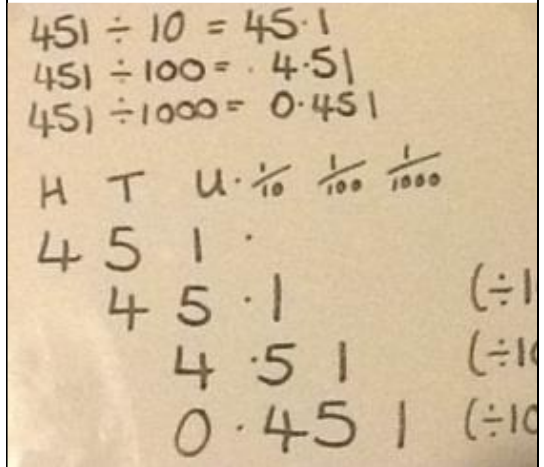 451 ÷ 10 = 45·1
451 ÷ 100 = · 4·51
451 ÷ 1000 = 0·451
H T U · 1/10 1/100 1/1000
4 5 1 ·
4 5 · 1 (÷1
4 · 5 1 (÷10
0 · 4 5 1 (÷10